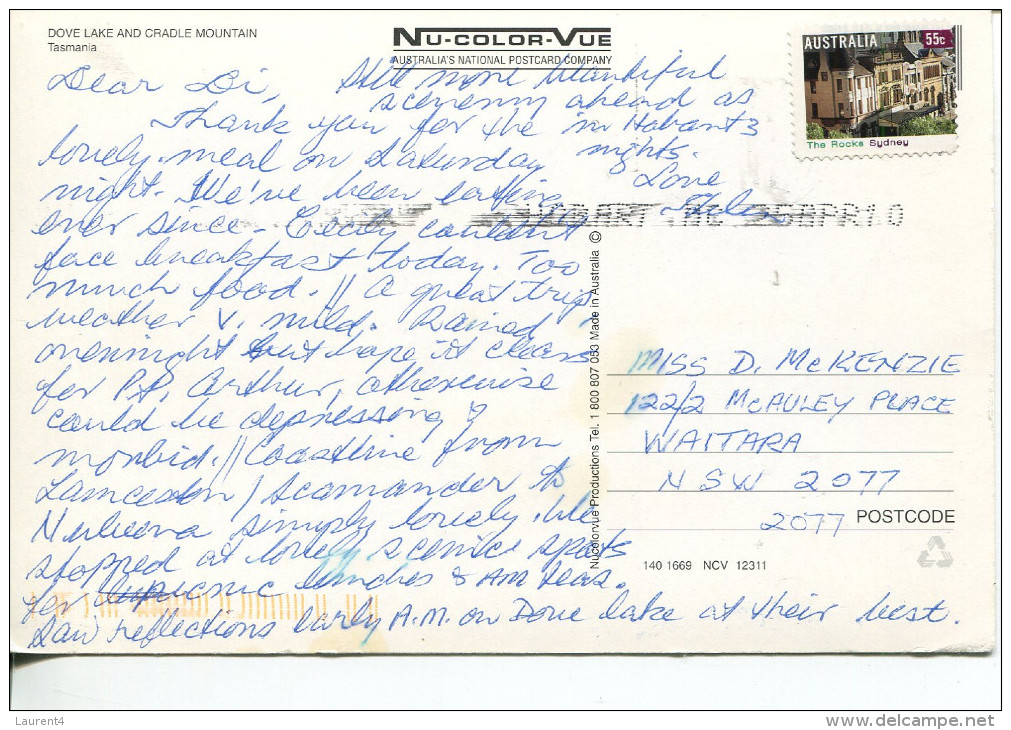 DOVE LAKE AND CRADLE MOUNTAIN
Tasmania
NU-COLOR-VUE
AUSTRALIA'S NATIONAL POSTCARD COMPANY
AUSTRALIA 55c
The Rocks Sydney
Dear Di,
Thank you for the
lovely meal on Saturday
night. We've been eating
ever since - Cecily couldn't
face breakfast today. Too
much food. // A great trip,
weather v. mild. Rained
overnight but hope it clears
for Pt. Arthur, otherwise
could be depressing &
morbid. // Coastline from
Launceston / Scamander to
simply lovely. We
stopped at lovely scenic spots
for picnic lunches & AM teas.
Saw reflections early A.M. on Dove lake at their best.
Still more beautiful
scenery ahead as
in Hobart 3
nights.
Love
Helen
APR10
Nucolorvue Productions Tel. 1 800 807 053 Made in Australia ©
MISS D. McKENZIE
122/2 McAULEY PLACE
WAITARA
NSW 2077
2077 POSTCODE
140 1669 NCV 12311
Laurent4
delcampe.net